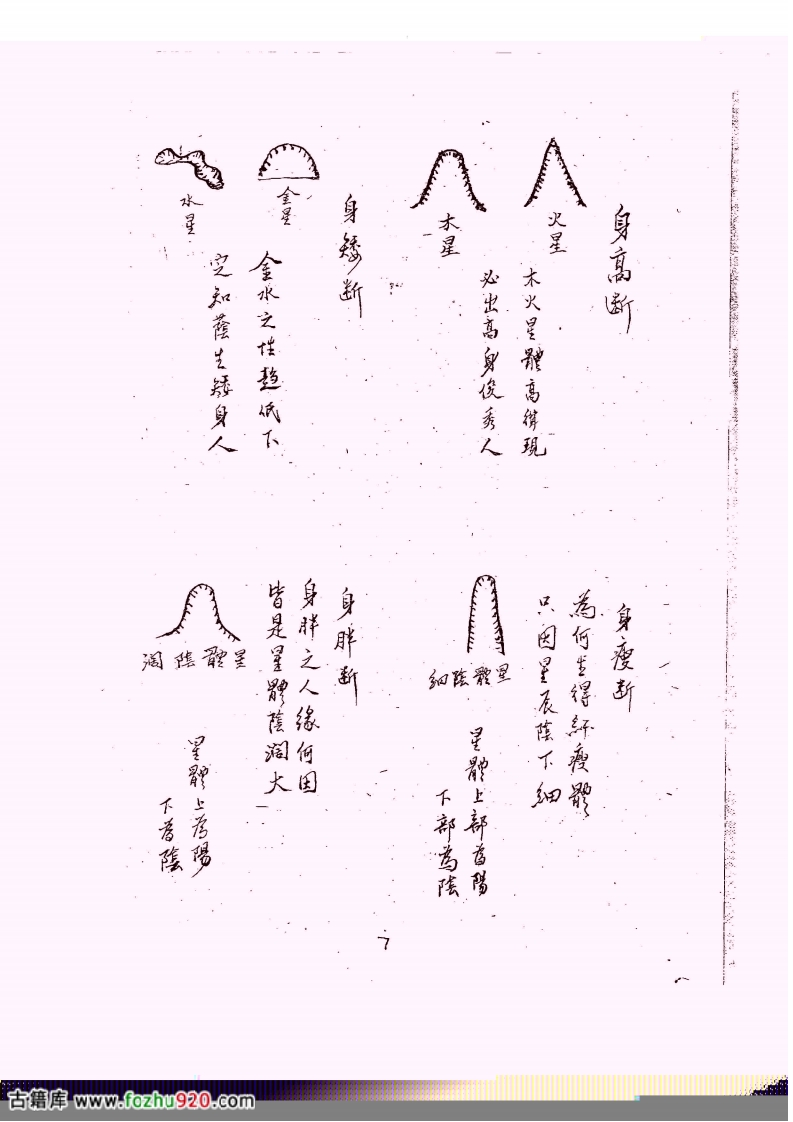 身高断
火星
木火星體高得現
必出高身俊秀人
木星
身矮断
金水之性趋低下
定知蔭生矮身人
金星
水星
身瘦断
為何生得 瘦體
只因星辰陰下細
星體陰細
星體上部為陽
下部為陰
身胖断
身胖之人緣何因
皆是星體陰濶大
星體陰濶
星體上為陽
下為陰
7
古籍库 www.fozhu920.com